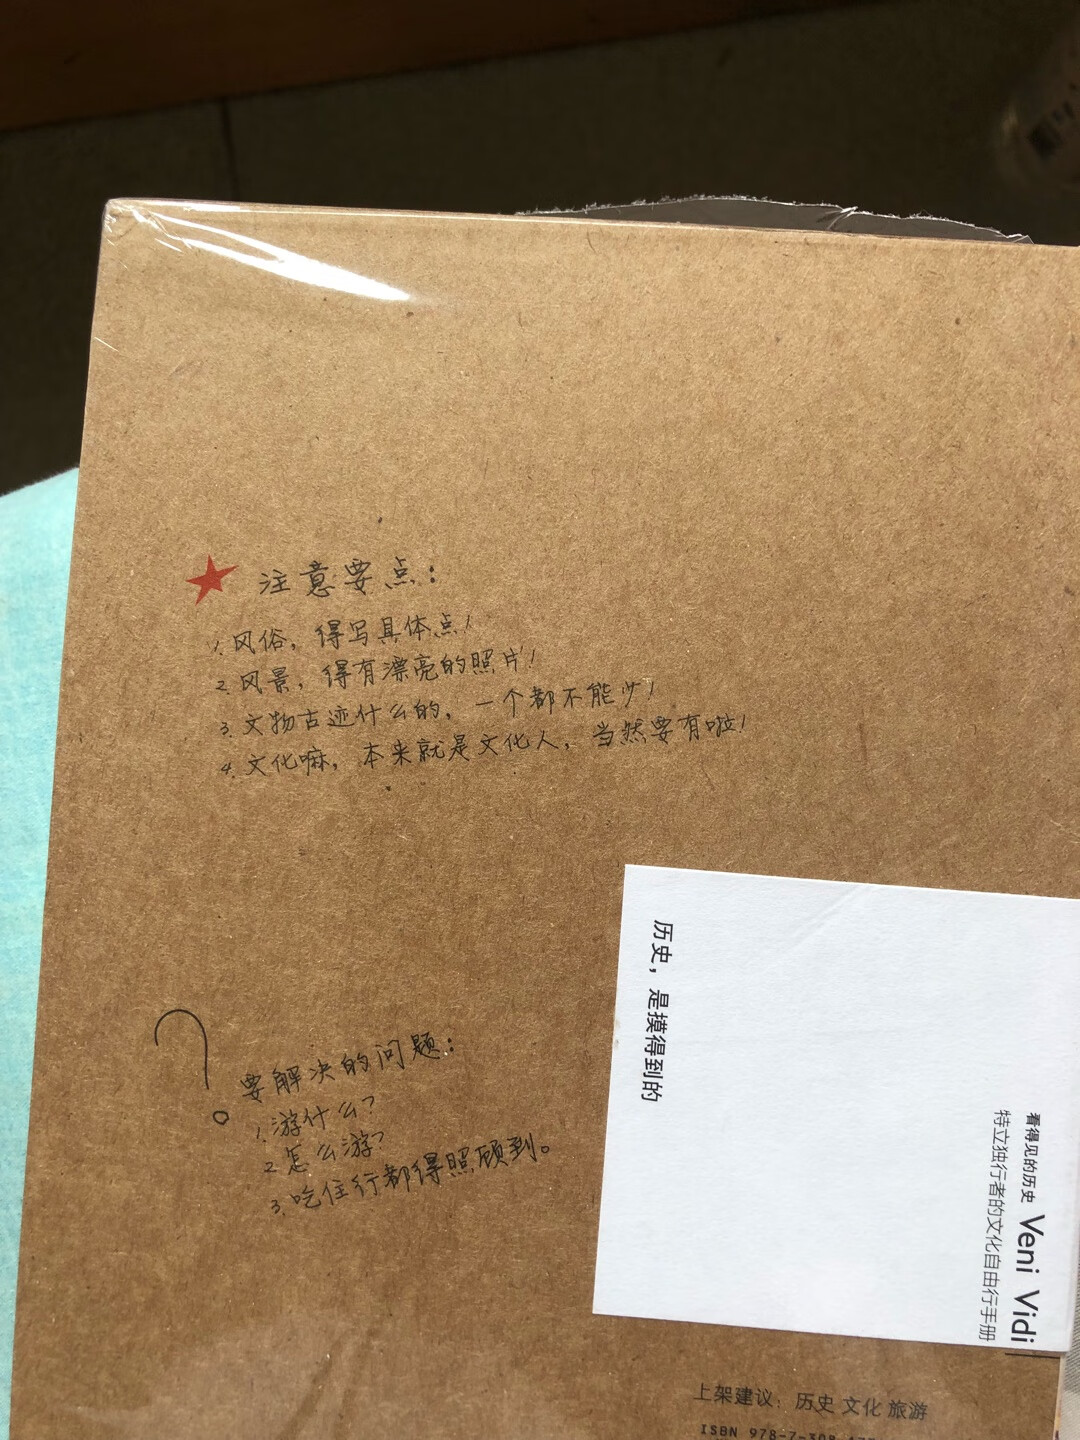 注意要点：
1.风俗，得写具体点！
2.风景，得有漂亮的照片！
3.文物古迹什么的，一个都不能少！
4.文化嘛，本来就是文化人，当然要有啦！
要解决的问题：
1.游什么？
2.怎么游？
3.吃住行都得照顾到。
历史，是摸得到的
看得见的历史 Veni Vidi
特立独行者的文化自由行手册
上架建议：历史 文化 旅游
ISBN 978-7-308-